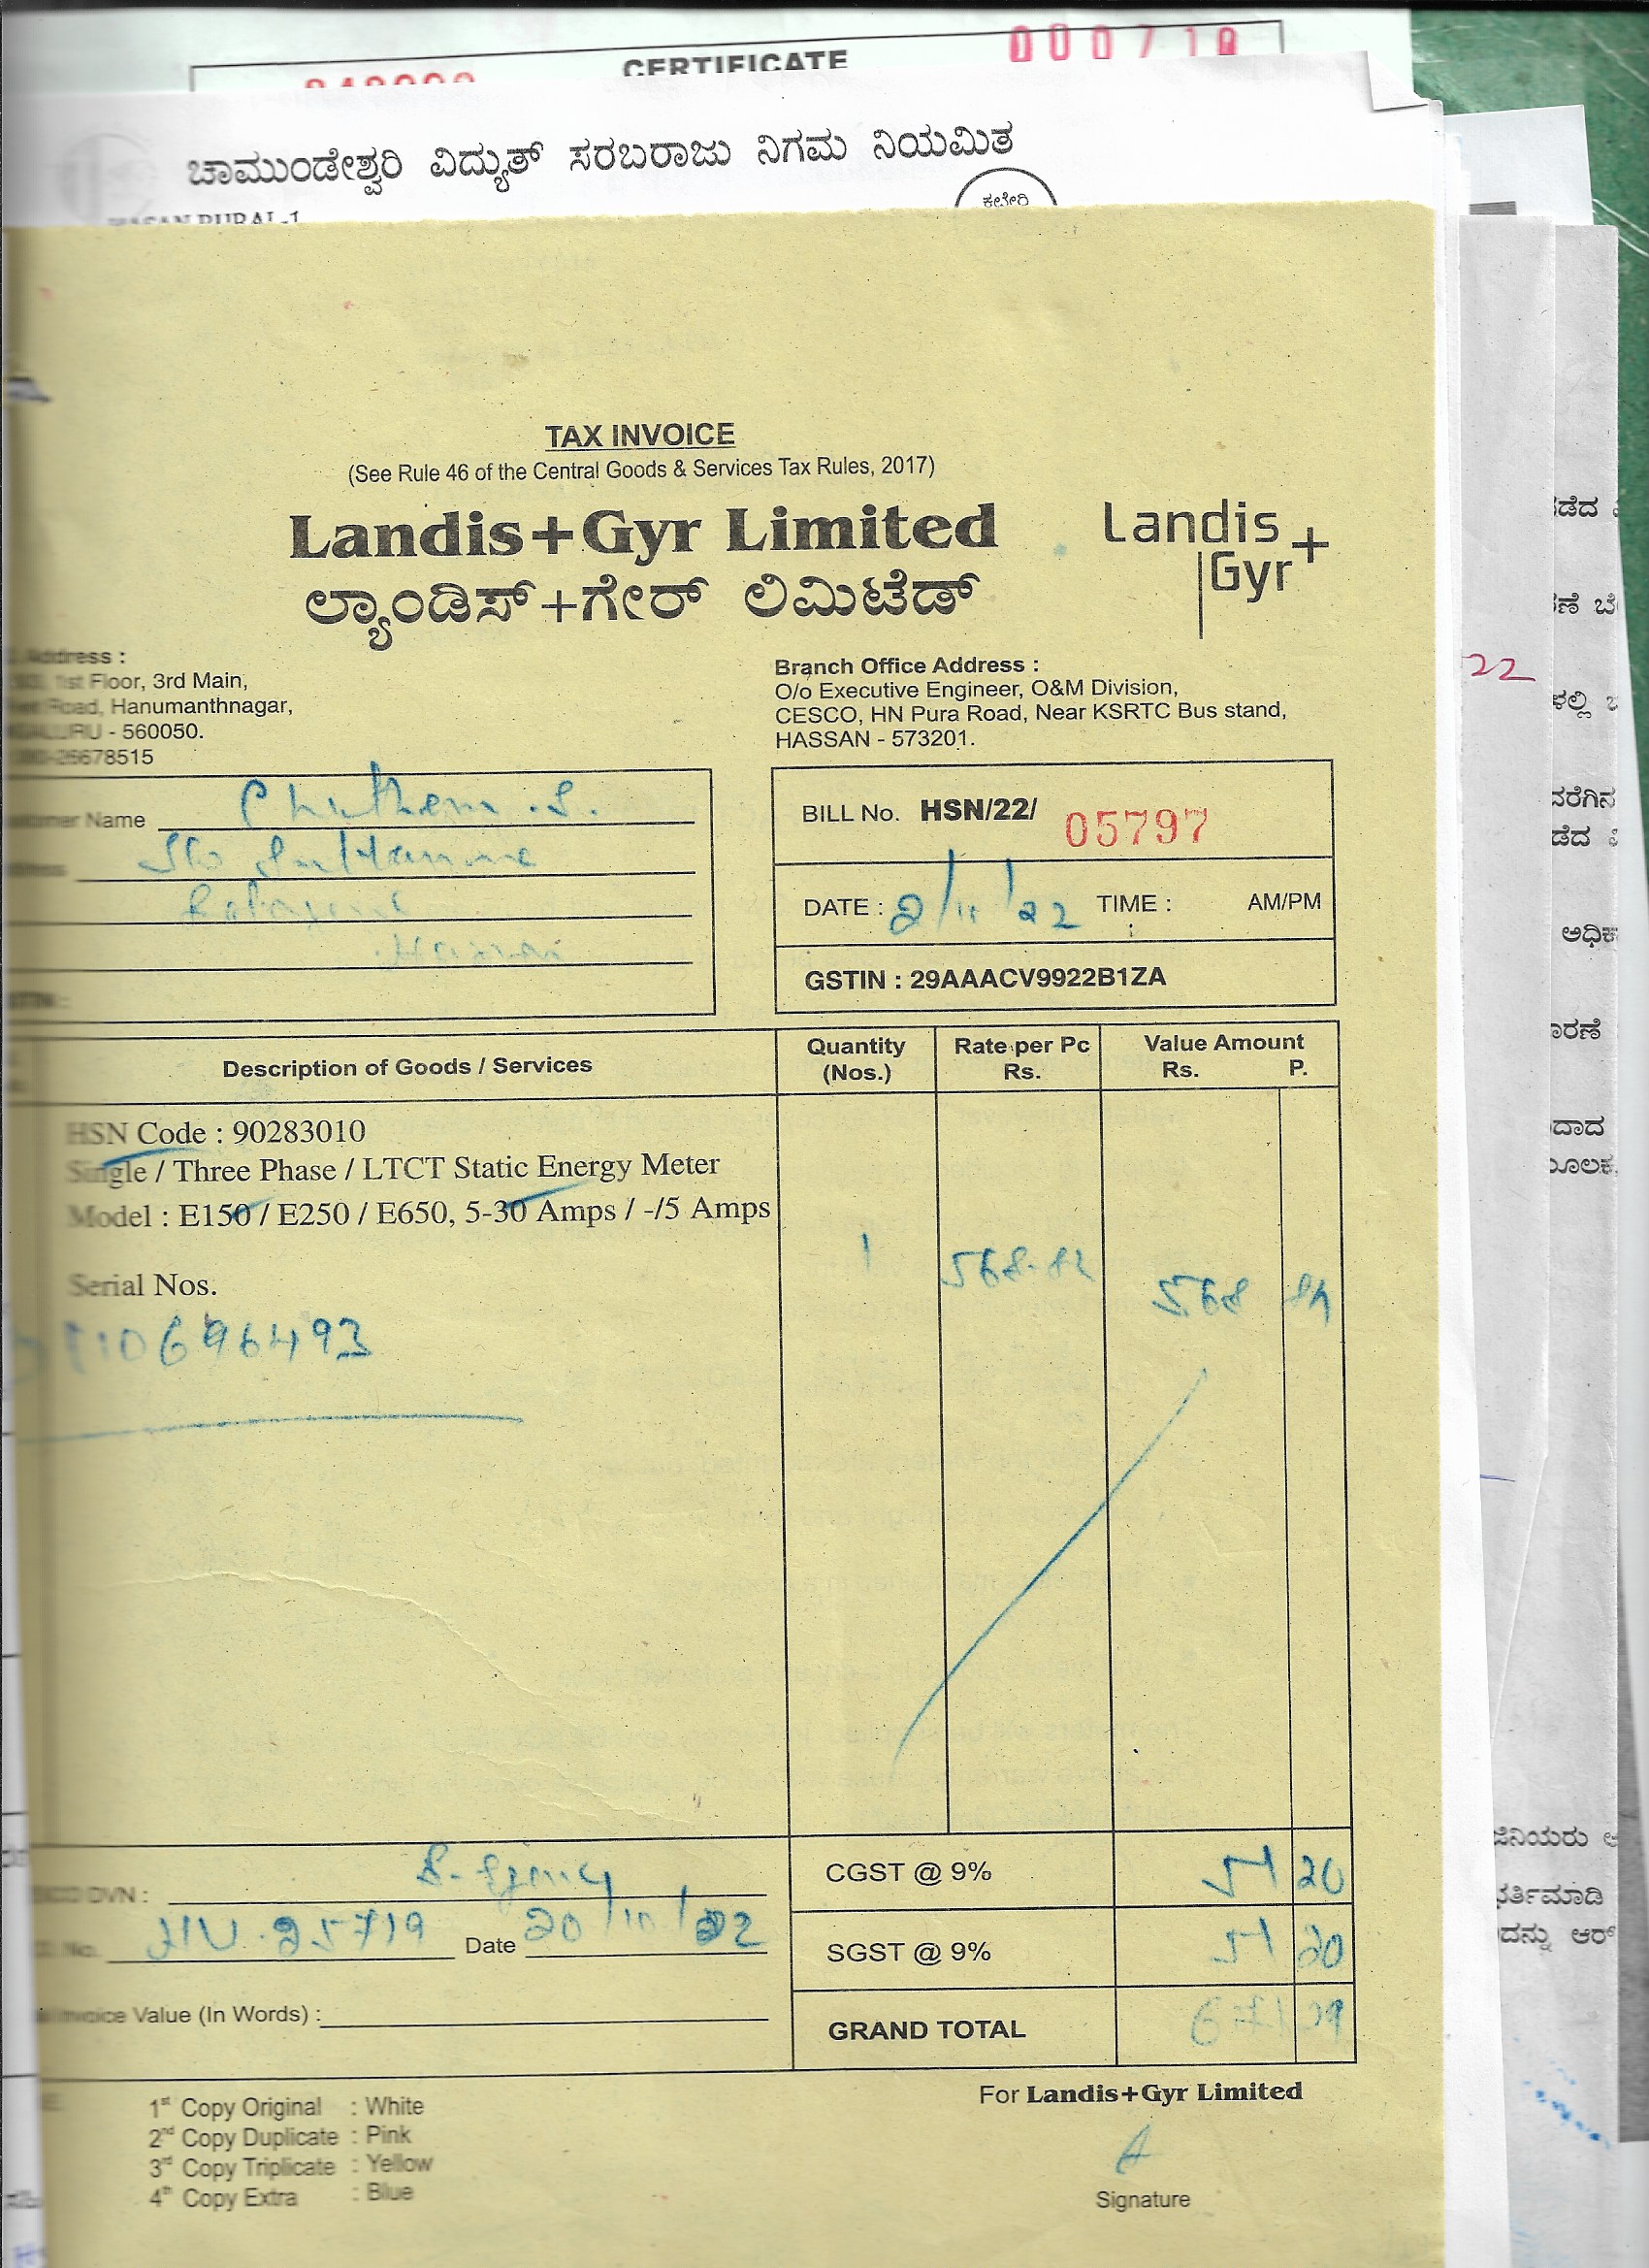 CERTIFICATE
000710
ಚಾಮುಂಡೇಶ್ವರಿ ವಿದ್ಯುತ್ ಸರಬರಾಜು ನಿಗಮ ನಿಯಮಿತ
ಕಛೇರಿ
TAX INVOICE
(See Rule 46 of the Central Goods & Services Tax Rules, 2017)
Landis+Gyr Limited
ಲ್ಯಾಂಡಿಸ್+ಗೇರ್ ಲಿಮಿಟೆಡ್
Landis
Gyr+
Address :
1st Floor, 3rd Main,
Road, Hanumanthnagar,
- 560050.
26678515
Branch Office Address :
O/o Executive Engineer, O&M Division,
CESCO, HN Pura Road, Near KSRTC Bus stand,
HASSAN - 573201.
Name
BILL No. HSN/22/ 05797
DATE : 2/11/22 TIME : AM/PM
GSTIN : 29AAACV9922B1ZA
Description of Goods / Services
Quantity (Nos.)
Rate per Pc Rs.
Value Amount
Rs. P.
HSN Code : 90283010
Single / Three Phase / LTCT Static Energy Meter
Model : E150 / E250 / E650, 5-30 Amps / -/5 Amps
1
568
Serial Nos.
DVN :
CGST @ 9% 51 20
25719 Date 20/10/22
SGST @ 9% 51 20
Invoice Value (In Words) :
GRAND TOTAL 671
For Landis+Gyr Limited
1st Copy Original : White
2nd Copy Duplicate : Pink
3rd Copy Triplicate : Yellow
4th Copy Extra : Blue
Signature
22